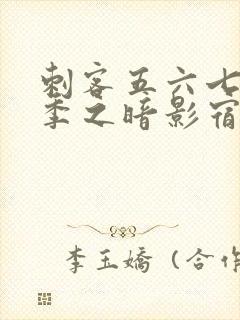 刺客五六七
季之暗影宿
李玉嬌（合作